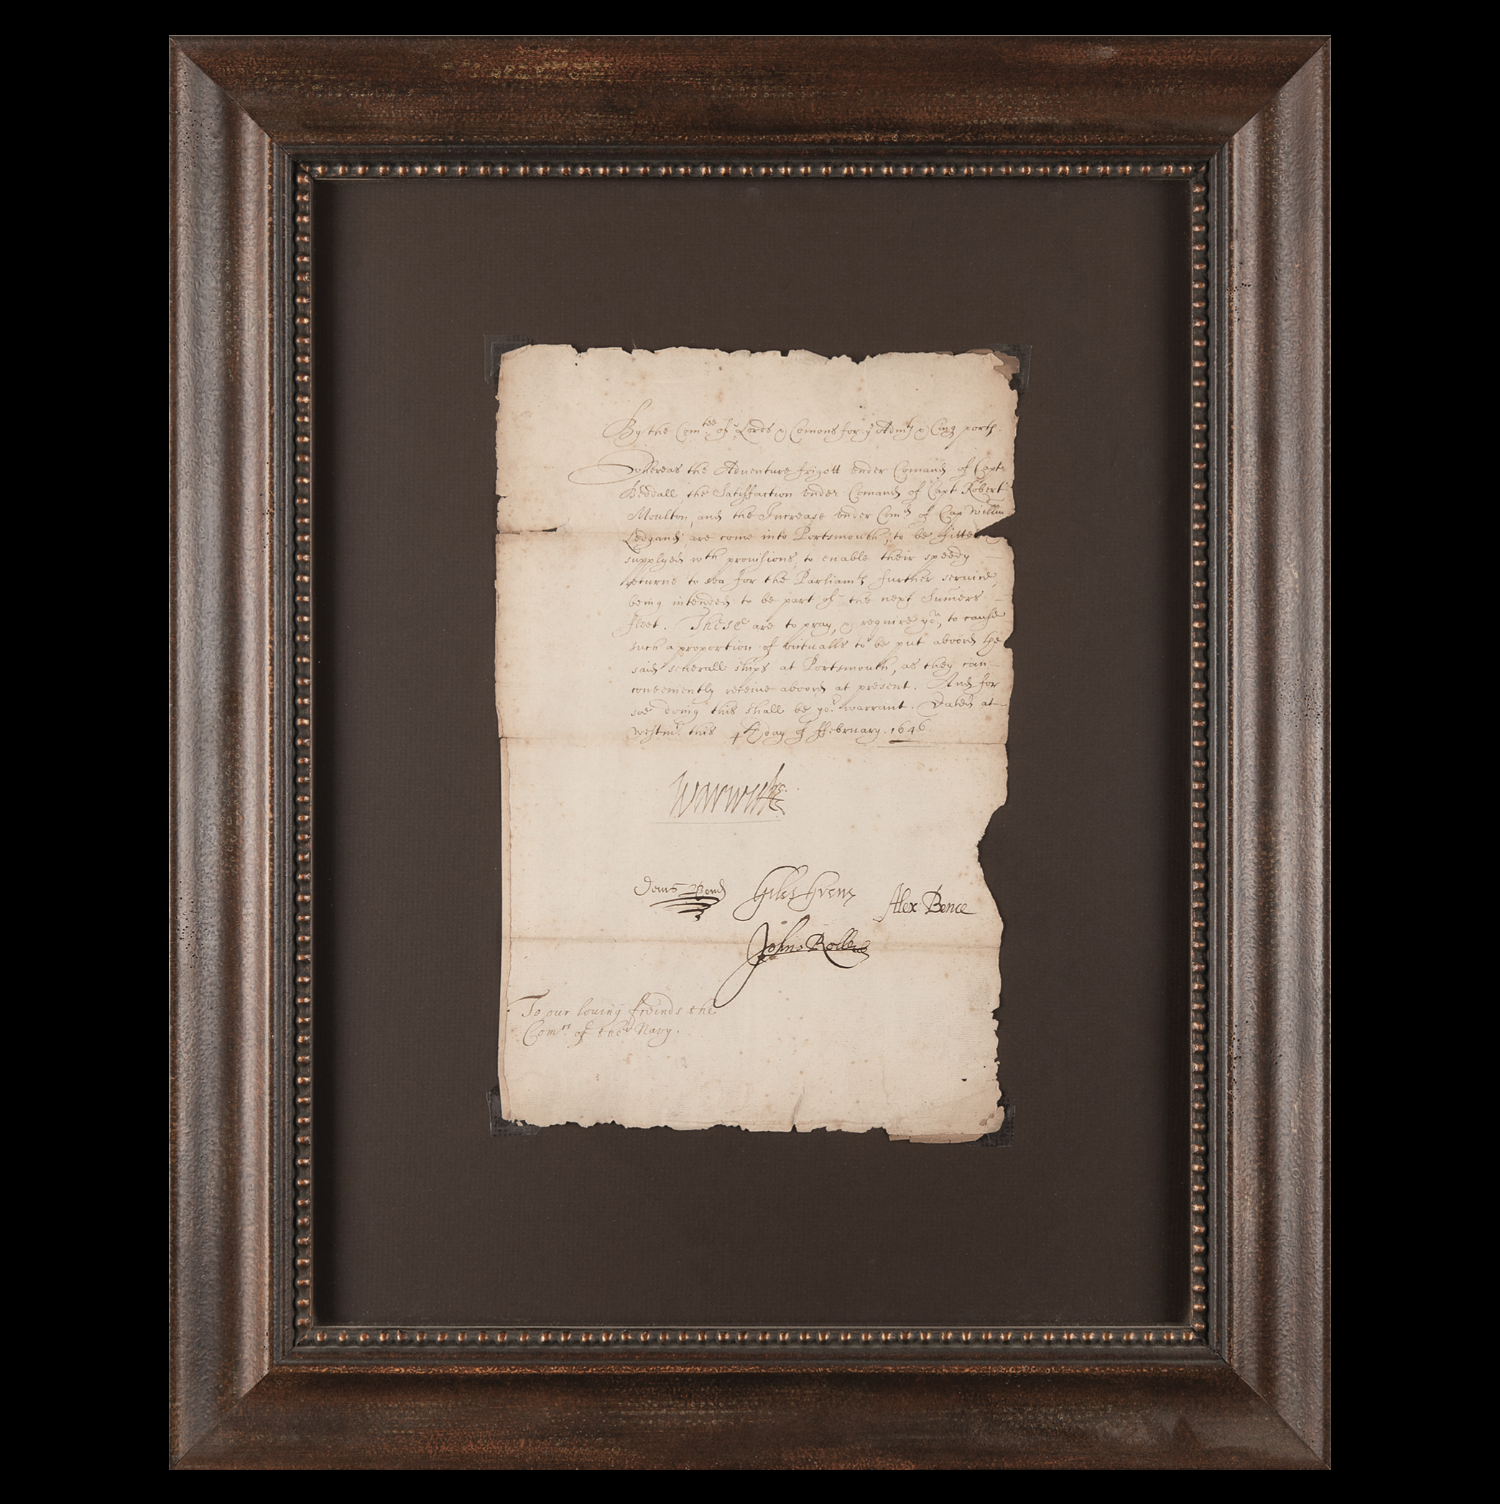 By the Com:tee of ye Lords & Comons for ye Admty & Cinq ports.
Whereas the Adventure frigott under Comand of Capt
Beddall, the Satisffaction under Comand of Capt Robert
Moulton, and the Increase under Comd of Cap Willm
are come into Portsmouth, to be fitted
supplyed wth provisions, to enable their speedy
returne to sea for the Parliamts further service,
being intended to be part of the next Sumers
fleet. These are to pray, & require you, to cause
such a proportion of victualls to be put aboord the
said severall ships at Portsmouth, as they can
conveniently receive aboord at present. And for
soe doing this shall be yor warrant. Dated at
Westmr. this 4th day of ffebruary. 1646
Warwick
Denis Bond Giles Grene Alex Bence
John Rolle
To our loving freinds the
Comrs of the Navy.